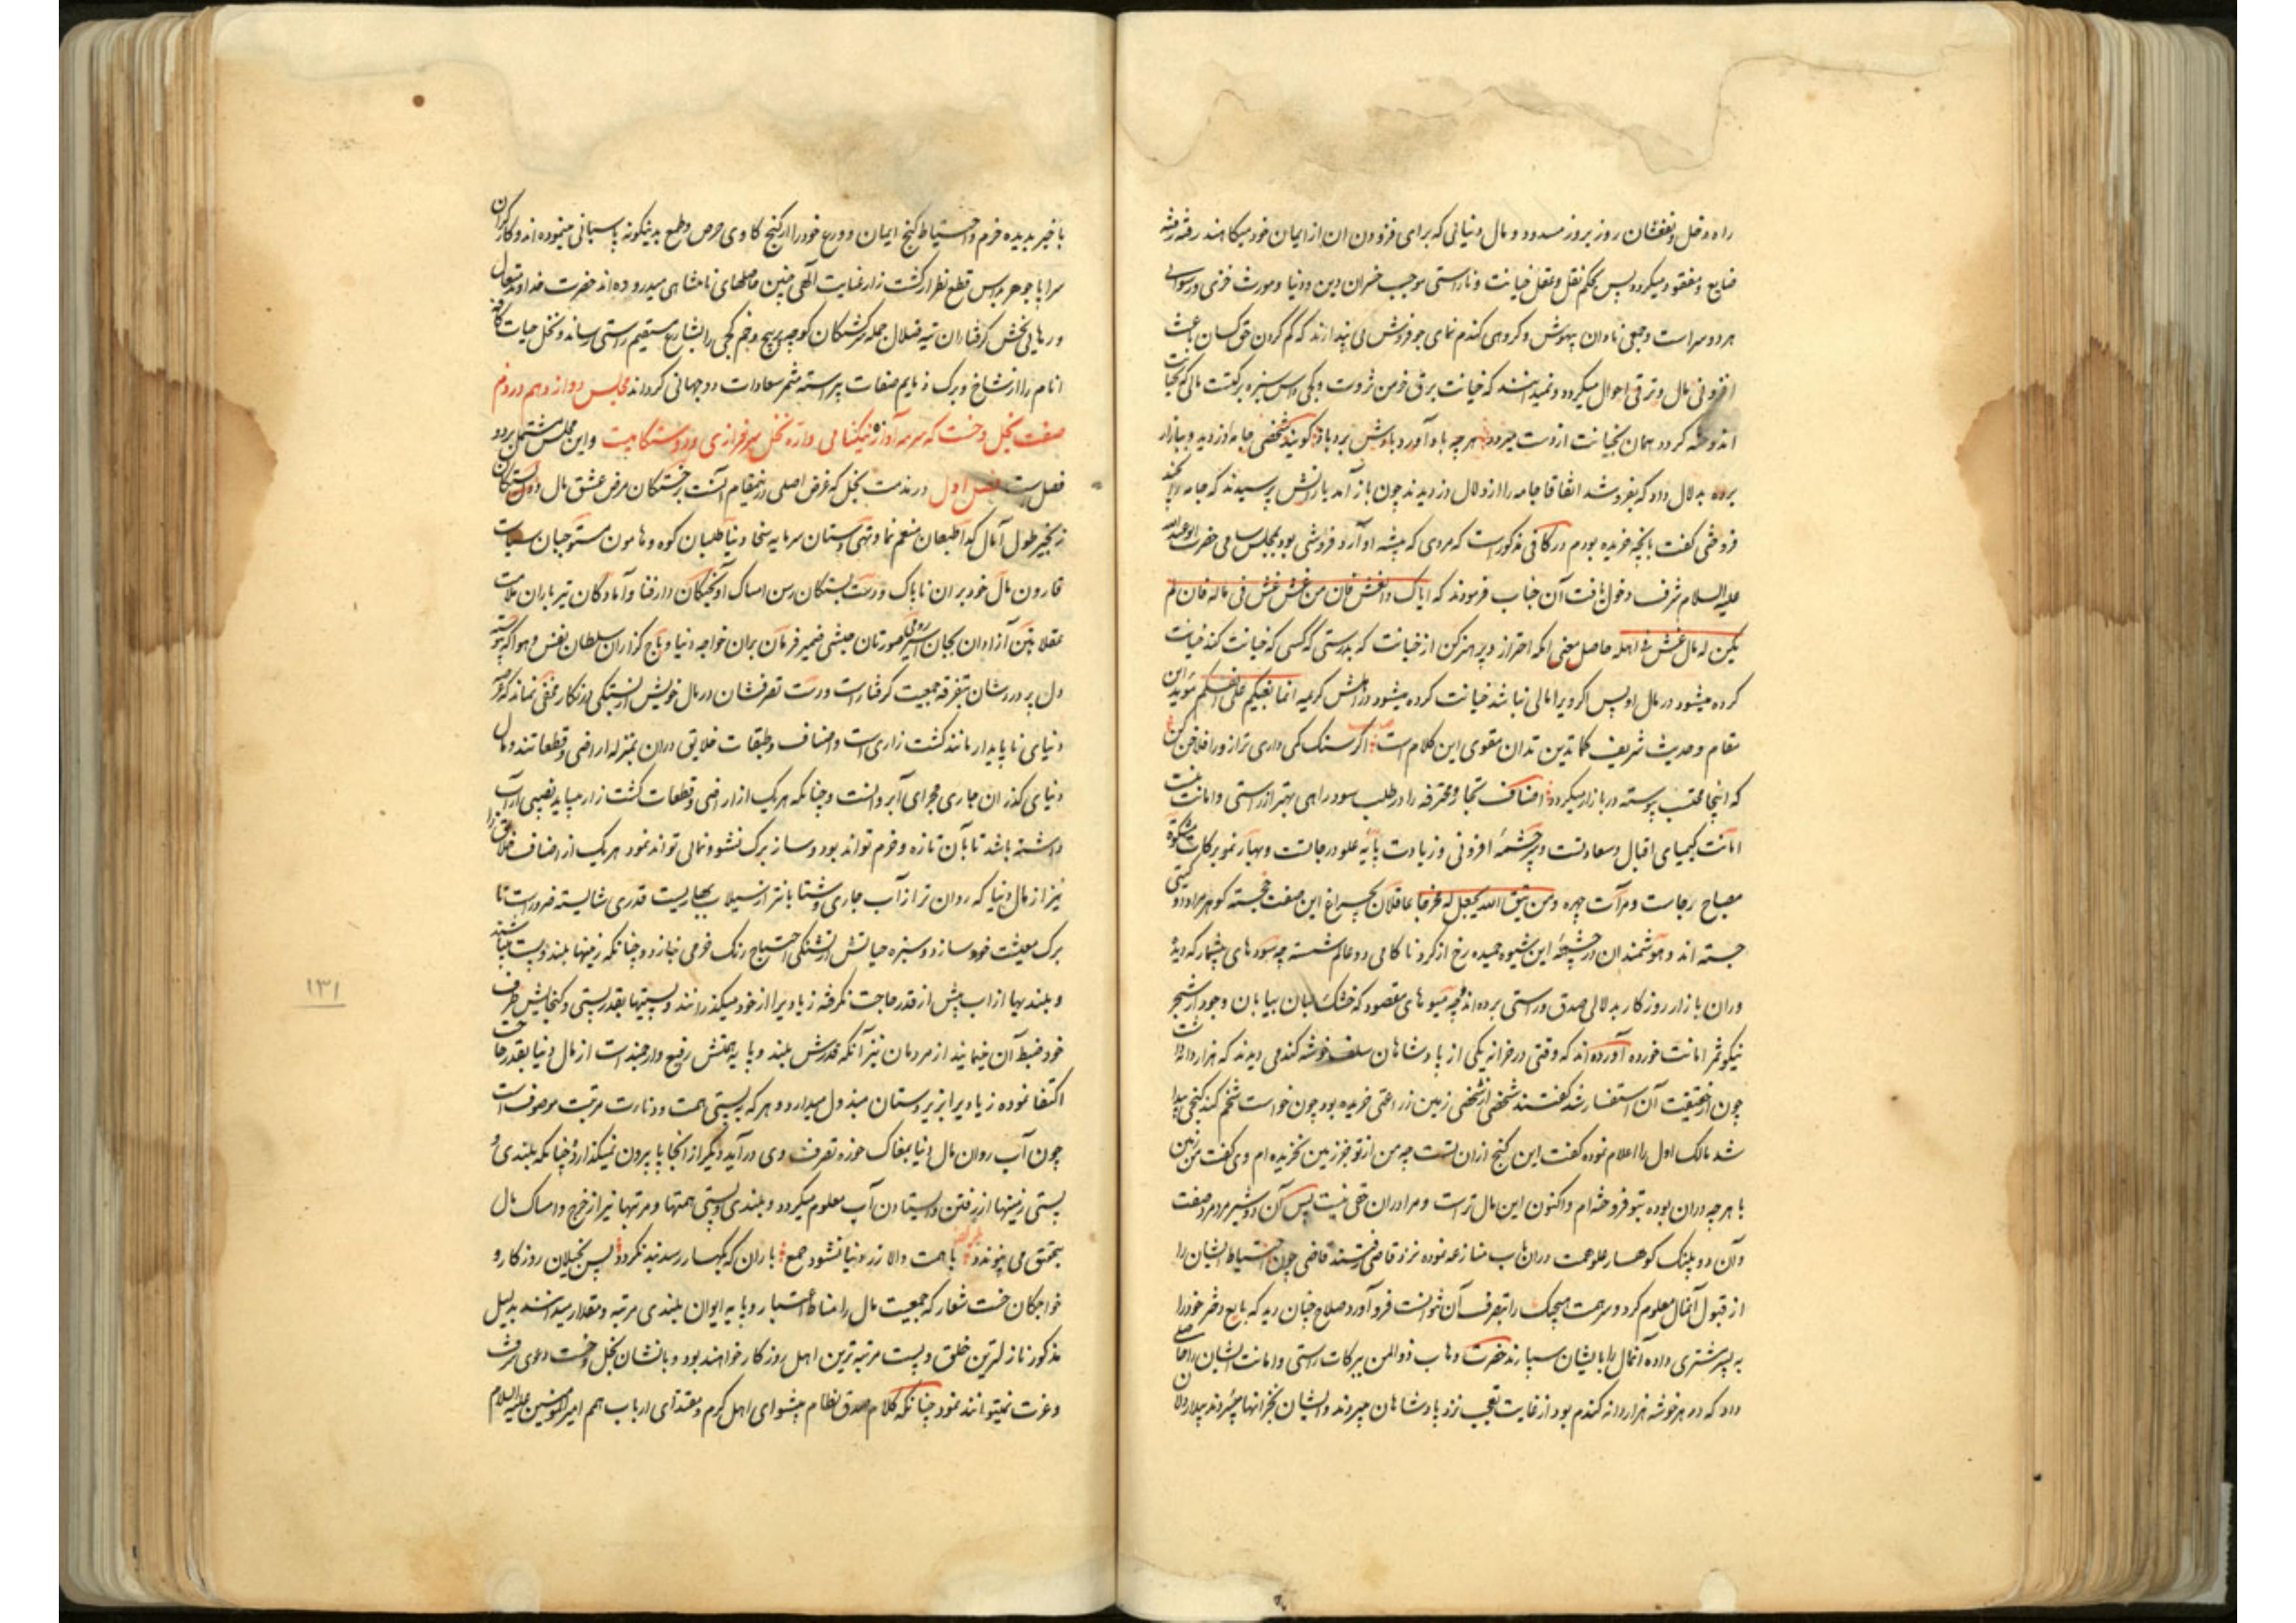 راه دخل و نفعشان روز بروز مسدود و مال دنیائی که برای فزودن آن از ایمان خود میکاهند رفته رفته
ضایع و مفقود میکردد پس بحکم نقل و عقل خیانت و ناراستی موجب خسران دین و دنیا و مورث خزی و رسوایی
هر دو سراست و جمعی نادان بیهوش و کروهی کندم نمای جو فروش می پندارند که کم کردن حق کسان باعث
افزونی مال و ترقی احوال میکردد و نمیدانند که خیانت برق خرمن ثروت و کجی داس سبزه برکتست مالی که بخیانت
اندوخته کردد همان بخیانت از دست میرود هر چه باد آورد بادش برد باز کویند شخصی جامه دزدید و ببازار
برده بدلال داد که بفروشد اتفاقا جامه را از دلال دزدیدند چون باز آمد یارانش پرسیدند که جامه را بچند
فروختی گفت بآنچه خریده بودم در کافی مذکور است که مردی که پیشه او آرد فروشی بود بمجلس سامی حضرت ابو عبدالله
علیه السلام شرف دخول یافت آن جناب فرمودند که ایاک و الغش فان من غش غش فی ماله فان لم
یکن له مال غش فی اهله حاصل معنی انکه احتراز و پرهیز کن از خیانت که بدرستی که کسی که خیانت کند خیانت
کرده میشود در مال او پس اکر ویرا مالی نباشد خیانت کرده میشود در اهلش کریمه انما بغیکم علی انفسکم موید این
مقام و حدیث شریف کما تدین تدان مقوی این کلام است اکر سنک کمی داری ترازو را فلاخن کن
که اینجا محتسب پیوسته در بازار میکردد اصناف تجار و محترفه را در طلب سود راهی بهتر از راستی و امانت نیست
امانت کیمیای اقبال و سعادتست و سرچشمه افزونی و زیادت پایه علو درجات و بهار نمو برکات مشکوة
مصباح رجاست و مرآت چهره و من یتق الله یجعل له مخرجا عاقلان بچراغ این صفت خجسته کوهر مراد دو کیتی
جسته اند و هوشمندان در چشمه این شیوه حمیده رخ از کرد ناکامی دو عالم شسته چه سودهای بیشمار که دیده
وران بازار روزکار بدلالی صدق و راستی برده اند و چه میوهای مقصود که خشک لبان بیابان وجود از شجر
نیکو ثمر امانت خورده آورده اند که وقتی در خزانه یکی از پادشاهان سلف خوشه کندمی دیدند که هزار دانه داشت
چون از حقیقت آن استفسار شد گفتند شخصی از شخصی زمین زراعتی خریده بود چون خواست تخم کند کنجی پیدا
شد مالک اول را اعلام نموده گفت این کنج ازان تست چه من از تو جز زمین نخریده ام وی گفت من زمین
با هر چه دران بوده بتو فروخته ام و اکنون این مال تراست و مرا دران حقی نیست پس آن دو شیر مرد مروت صفت
و آن دو پلنک کوهسار علو همت دران باب منازعه نموده نزد قاضی رفتند قاضی چون احتیاط ایشان را
از قبول آنمال معلوم کرد و سر همت هیچیک را بتصرف آن نتوانست فرو آورد صلاح چنان دید که بایع دختر خود را
به پسر مشتری داده آنمال را بایشان سپارند حضرت وهاب ذو المنن ببرکات راستی و امانت ایشان را حاصلی
داد که در هر خوشه هزار دانه کندم بود از غایت تعجب نزد پادشاهان میبردند و ایشان بخزانها میسپردند بیدار دلان
با خبر بدیده حزم و احتیاط کنج ایمان و ورع خود را از کنج کاوی حرص و طمع بدینکونه پاسبانی مینموده اند و کارکران
سراپا جوهر بداس قطع نظر از کشت زار عنایت الهی چنین حاصلهای نامتناهی میدروده اند حضرت خداوند متعال
و رهایی بخش کرفتاران تیه ضلال جمله سرکشتکان کوچه پر پیچ و خم کجی را بشارع مستقیم راستی رساند و نخل حیات کافه
انام را از شاخ و برک ذمایم صفات پیراسته مثمر سعادات دو جهانی کرداند مجلس دوازدهم در ذم
صفت بخل و خست که سرمه آوازه نیکنامی و اره نخل سرفرازی و درستکامیست و این مجلس مشتمل بر دو
فصلست فصل اول در مذمت بخل که غرض اصلی در ینمقام آنست بر خستکان مرض عشق مال و دل بستکان
زنجیر طول آمال کدا طبعان منعم نما و تهی دستان سرمایه سخا دنیا طلبان کوه و هامون مستوجبان سیاست
قارون مال خود بران ناپاک و دست بستکان رسن امساک آونختکان دار فنا و آمادکان تیر باران ملامت
عقلا بتن آزادان بجان اسیر رومی صورتان حبشی ضمیر فرمان بران خواجه دنیا و باج کزاران سلطان نفس و هوا که پیوسته
دل پر دردشان بتفرقه جمعیت کرفتار است و دست تصرفشان در مال خویش از بستکی بیکار مخفی نماند که مر
دنیای ناپایدار مانند کشت زاری است و اصناف و طبقات خلایق دران بمنزله اراضی و قطعاتند و مال
دنیای کذران جاری مجرای آب روانست و چنانکه هر یک از اراضی و قطعات کشت زار میباید نصیبی از آب
داشته باشد تا بآن تازه و خرم تواند بود و ساز برک نشو و نمائی تواند نمود هر یک از اصناف خلایق را
نیز از مال دنیا که روان تر از آب جاری و شتابانتر از سیلاب بهاریست قدری شایسته ضرور است تا
برک معیشت خود سازد و سبزه حیاتش از تشنکی احتیاج رنک خرمی نبازد و چنانکه زمینها بلند و پست میباشند
و بلندیها از اب بیش از قدر حاجت نکرفته زیاد ویرا از خود میکذرانند و پستیها بقدر پستی و کنجایش ظرف
خود ضبط آن مینمایند از مردمان نیز آنکه قدرش بلند و پایه همتش رفیع و ارجمند است از مال دنیا بقدر حاجت
اکتفا نموده زیاد ویرا بزیردستان مبذول میدارد و هر که به پستی همت و دنائت مرتبت موصوف است
چون آب روان مال دنیا بمغاک حوزه تصرف وی در آید دیگر از آنجا پا بیرون نمیکذارد و چنانکه بلندی و
پستی زمینها از رفتن و ایستادن آب معلوم میکردد و بلندی و پستی همتها و مرتبها نیز از خرج و امساک مال
بتحقق می پیوندد با همت والا زر دنیا نشود جمع باران که بکهسار رسد بند نکردد پس بخیلان روزکار و
خواجکان خست شعار که جمعیت مال را مناط اعتبار و پایه ایوان بلندی مرتبه و مقدار میدانند بدلیل
مذکور نازلترین خلق و پست مرتبه ترین اهل روزکار خواهند بود و بانشان بخل و خست دعوی شرف
و عزت نمیتوانند نمود چنانکه کلام صدق نظام پیشوای اهل کرم و مقتدای ارباب همم امیرالمؤمنین علیه السلام
۱۳۱